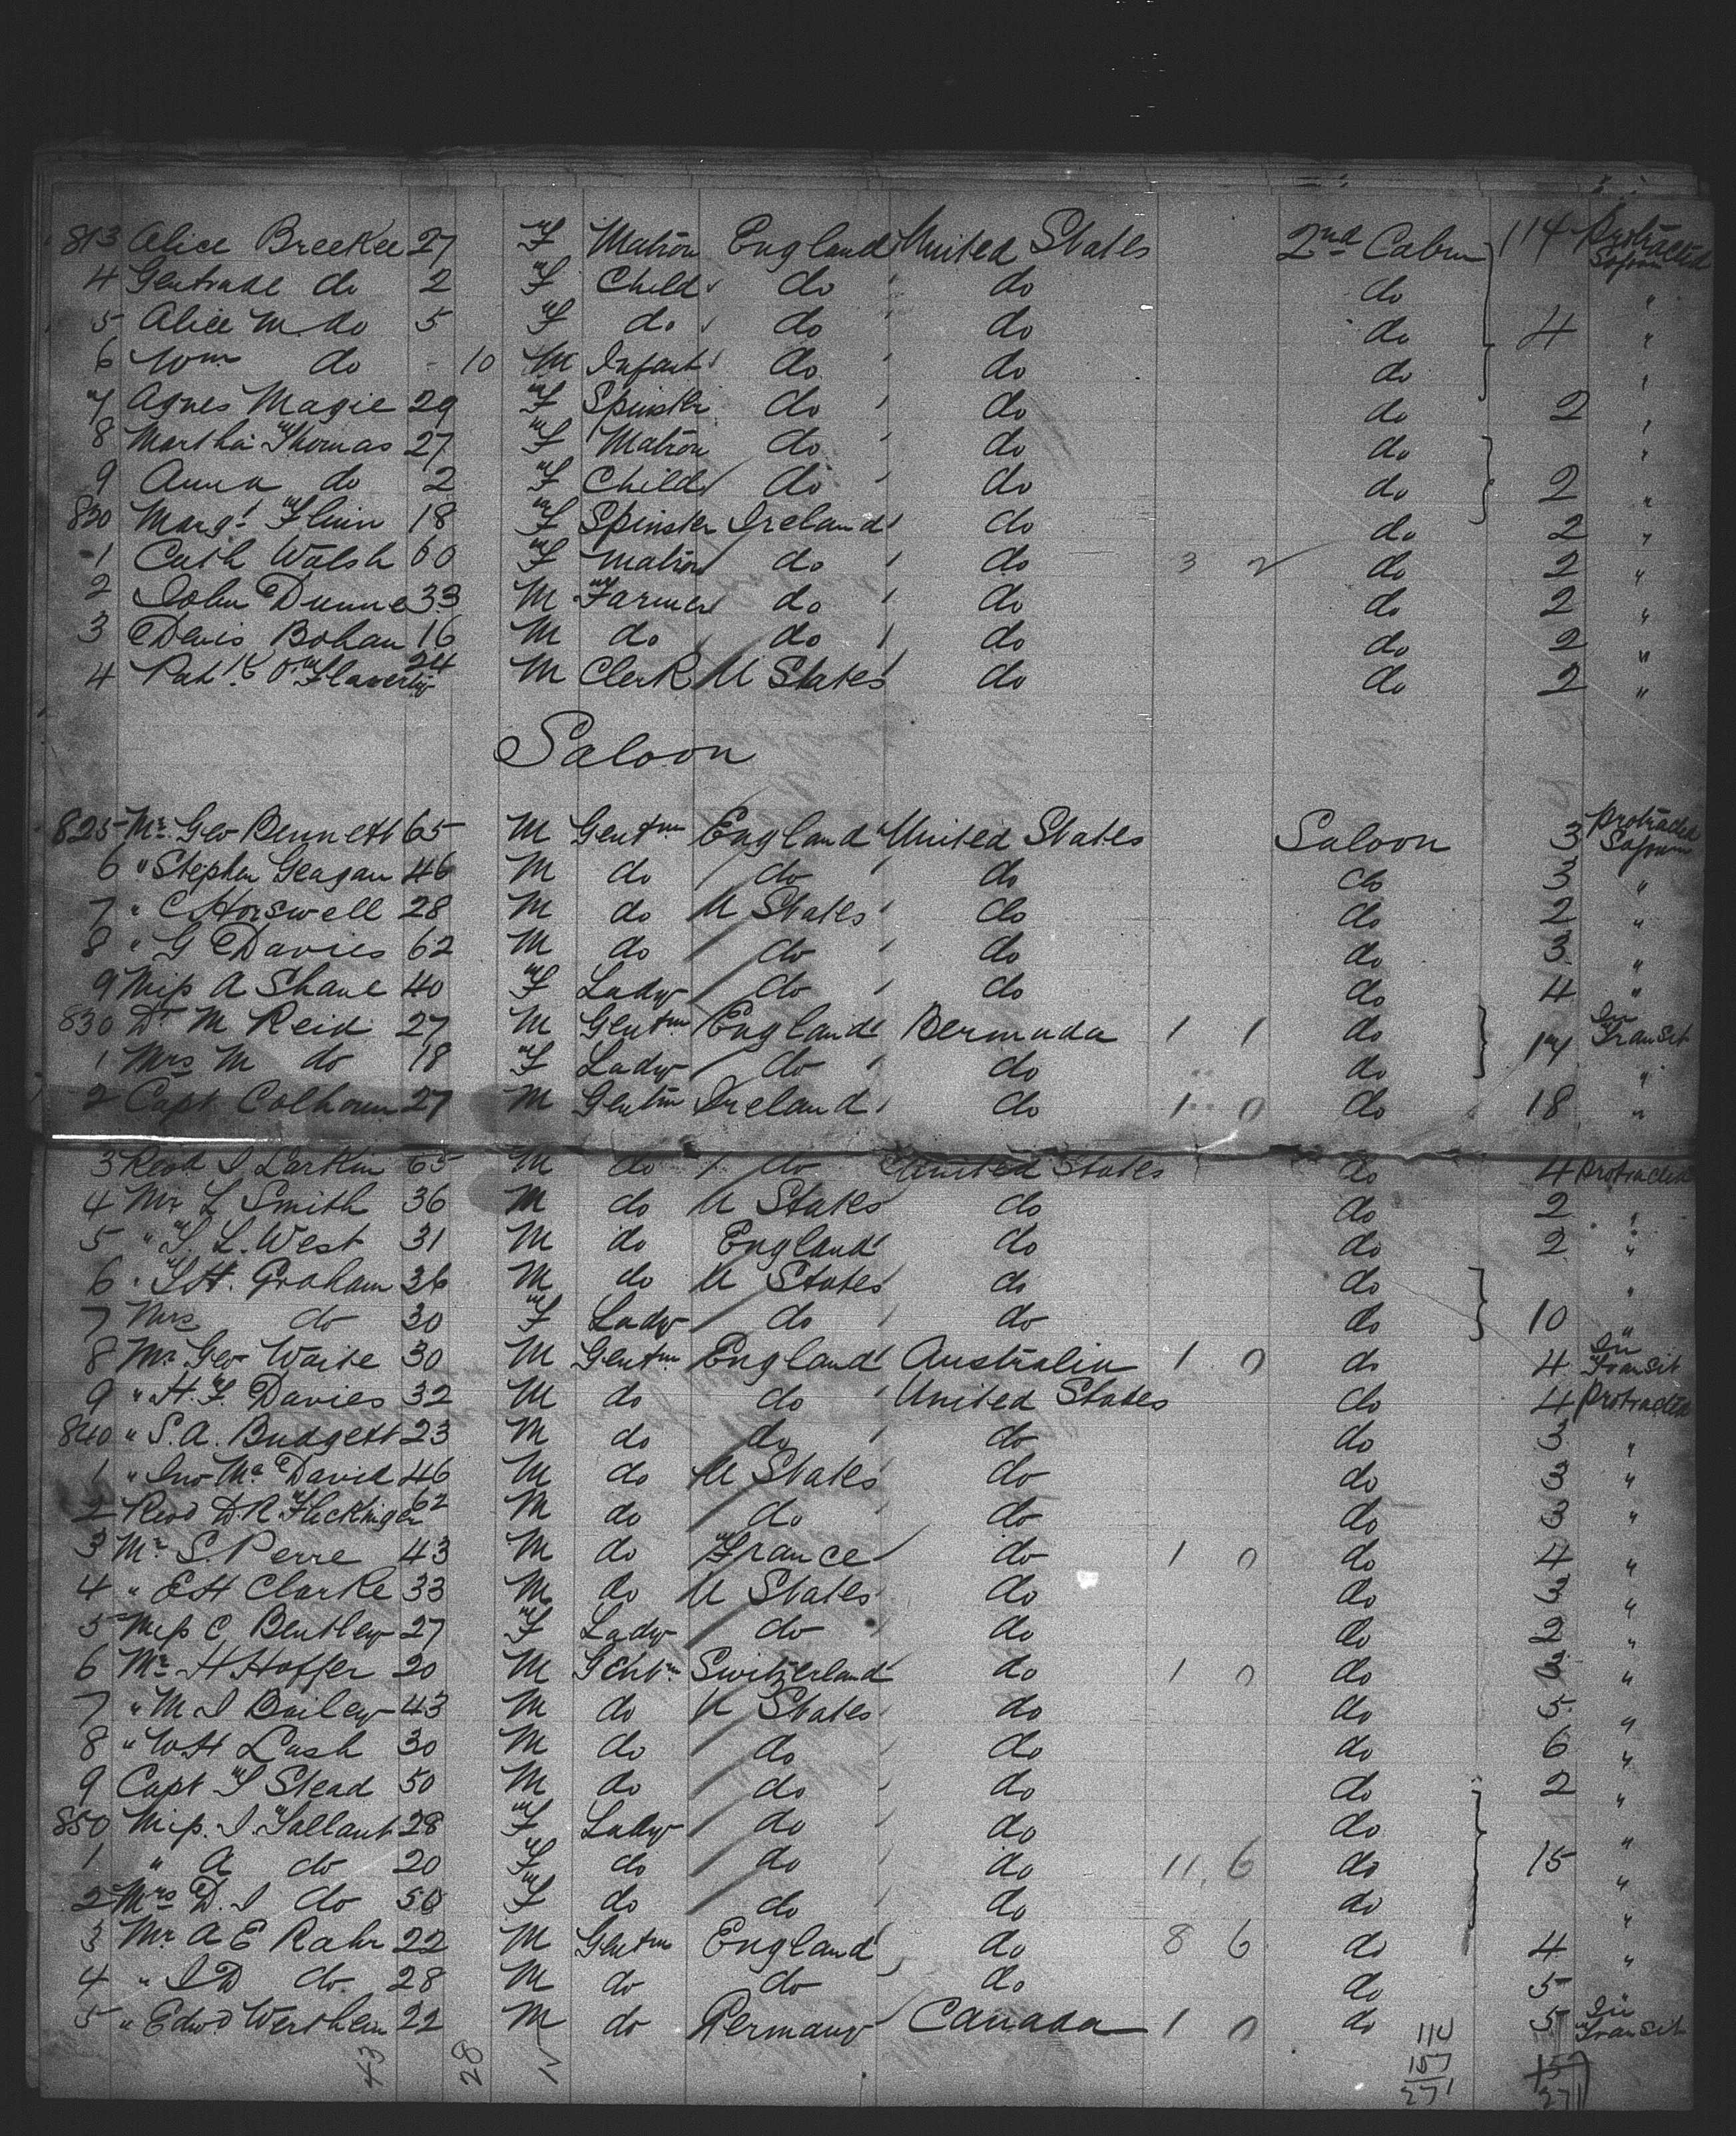 813 Alice Breekee 27 F Matron England United States 2nd Cabin 114 Protracted Sojourn
4 Gertrude do 2 F Child do do do "
5 Alice M do 5 F do do do do 4 "
6 Wm do 10 M Infant do do do "
7 Agnes Magie 29 F Spinster do do do 2 "
8 Martha Thomas 27 F Matron do do do "
9 Anna do 2 F Child do do do 2 "
820 Margt Flinn 18 F Spinster Ireland do do 2 "
1 Cath Walsh 60 F Matron do do 3 2 do 2 "
2 John Dunne 33 M Farmer do do do 2 "
3 Denis Bohan 16 M do do do do 2 "
4 Patk O'Flaverty 24 M Clerk U States do do 2 "
Saloon
825 Mr Geo Bennett 65 M Gentm England United States Saloon 3 Protracted Sojourn
6 " Stephen Geagan 46 M do do do do 3 "
7 " C Horswell 28 M do U States do do 2 "
8 " G Davies 62 M do do do do 3 "
9 Miss A Shane 40 F Lady do do do 4 "
830 Dr M Reid 27 M Gentm England Bermuda 1 1 do 17 In Transit
1 Mrs M do 18 F Lady do do do "
2 Capt Colhoun 27 M Gentm Ireland do 1 0 do 18 "
3 Revd J Larkin 65 M do do United States do 4 Protracted
4 Mr L Smith 36 M do U States do do 2 "
5 " T. L. West 31 M do England do do 2 "
6 " T H. Graham 36 M do U States do do "
7 Mrs do 30 F Lady do do do 10 "
8 Mr Geo Waite 30 M Gentm England Australia 1 0 do 4 In Transit
9 " H. F. Davies 32 M do do United States do 4 Protracted
840 " S. A. Budgett 23 M do do do do 3 "
1 " Jno McDavid 46 M do U States do do 3 "
2 Revd D. R Flickinger 62 M do do do do 3 "
3 Mr S. Perre 43 M do France do 1 0 do 4 "
4 " E H Clarke 33 M do U States do do 3 "
5 Miss C Bentley 27 F Lady do do do 2 "
6 Mr H Hoffer 20 M Gentm Switzerland do 1 0 do 3 "
7 " M J Bailey 43 M do U States do do 5 "
8 " W H Lash 30 M do do do do 6 "
9 Capt T Stead 50 M do do do do 2 "
850 Miss J. Tallant 28 F Lady do do do "
1 " A do 20 F do do do 11 6 do 15 "
2 Mrs D. J do 50 F do do do do "
3 Mr A E Rahr 22 M Gentm England do 8 6 do 4 "
4 " J D do 28 M do do do do 5
5 " Edwd Wertheim 22 M do Germany Canada 1 0 do 5 In Transit
43 28 114
157
271 271